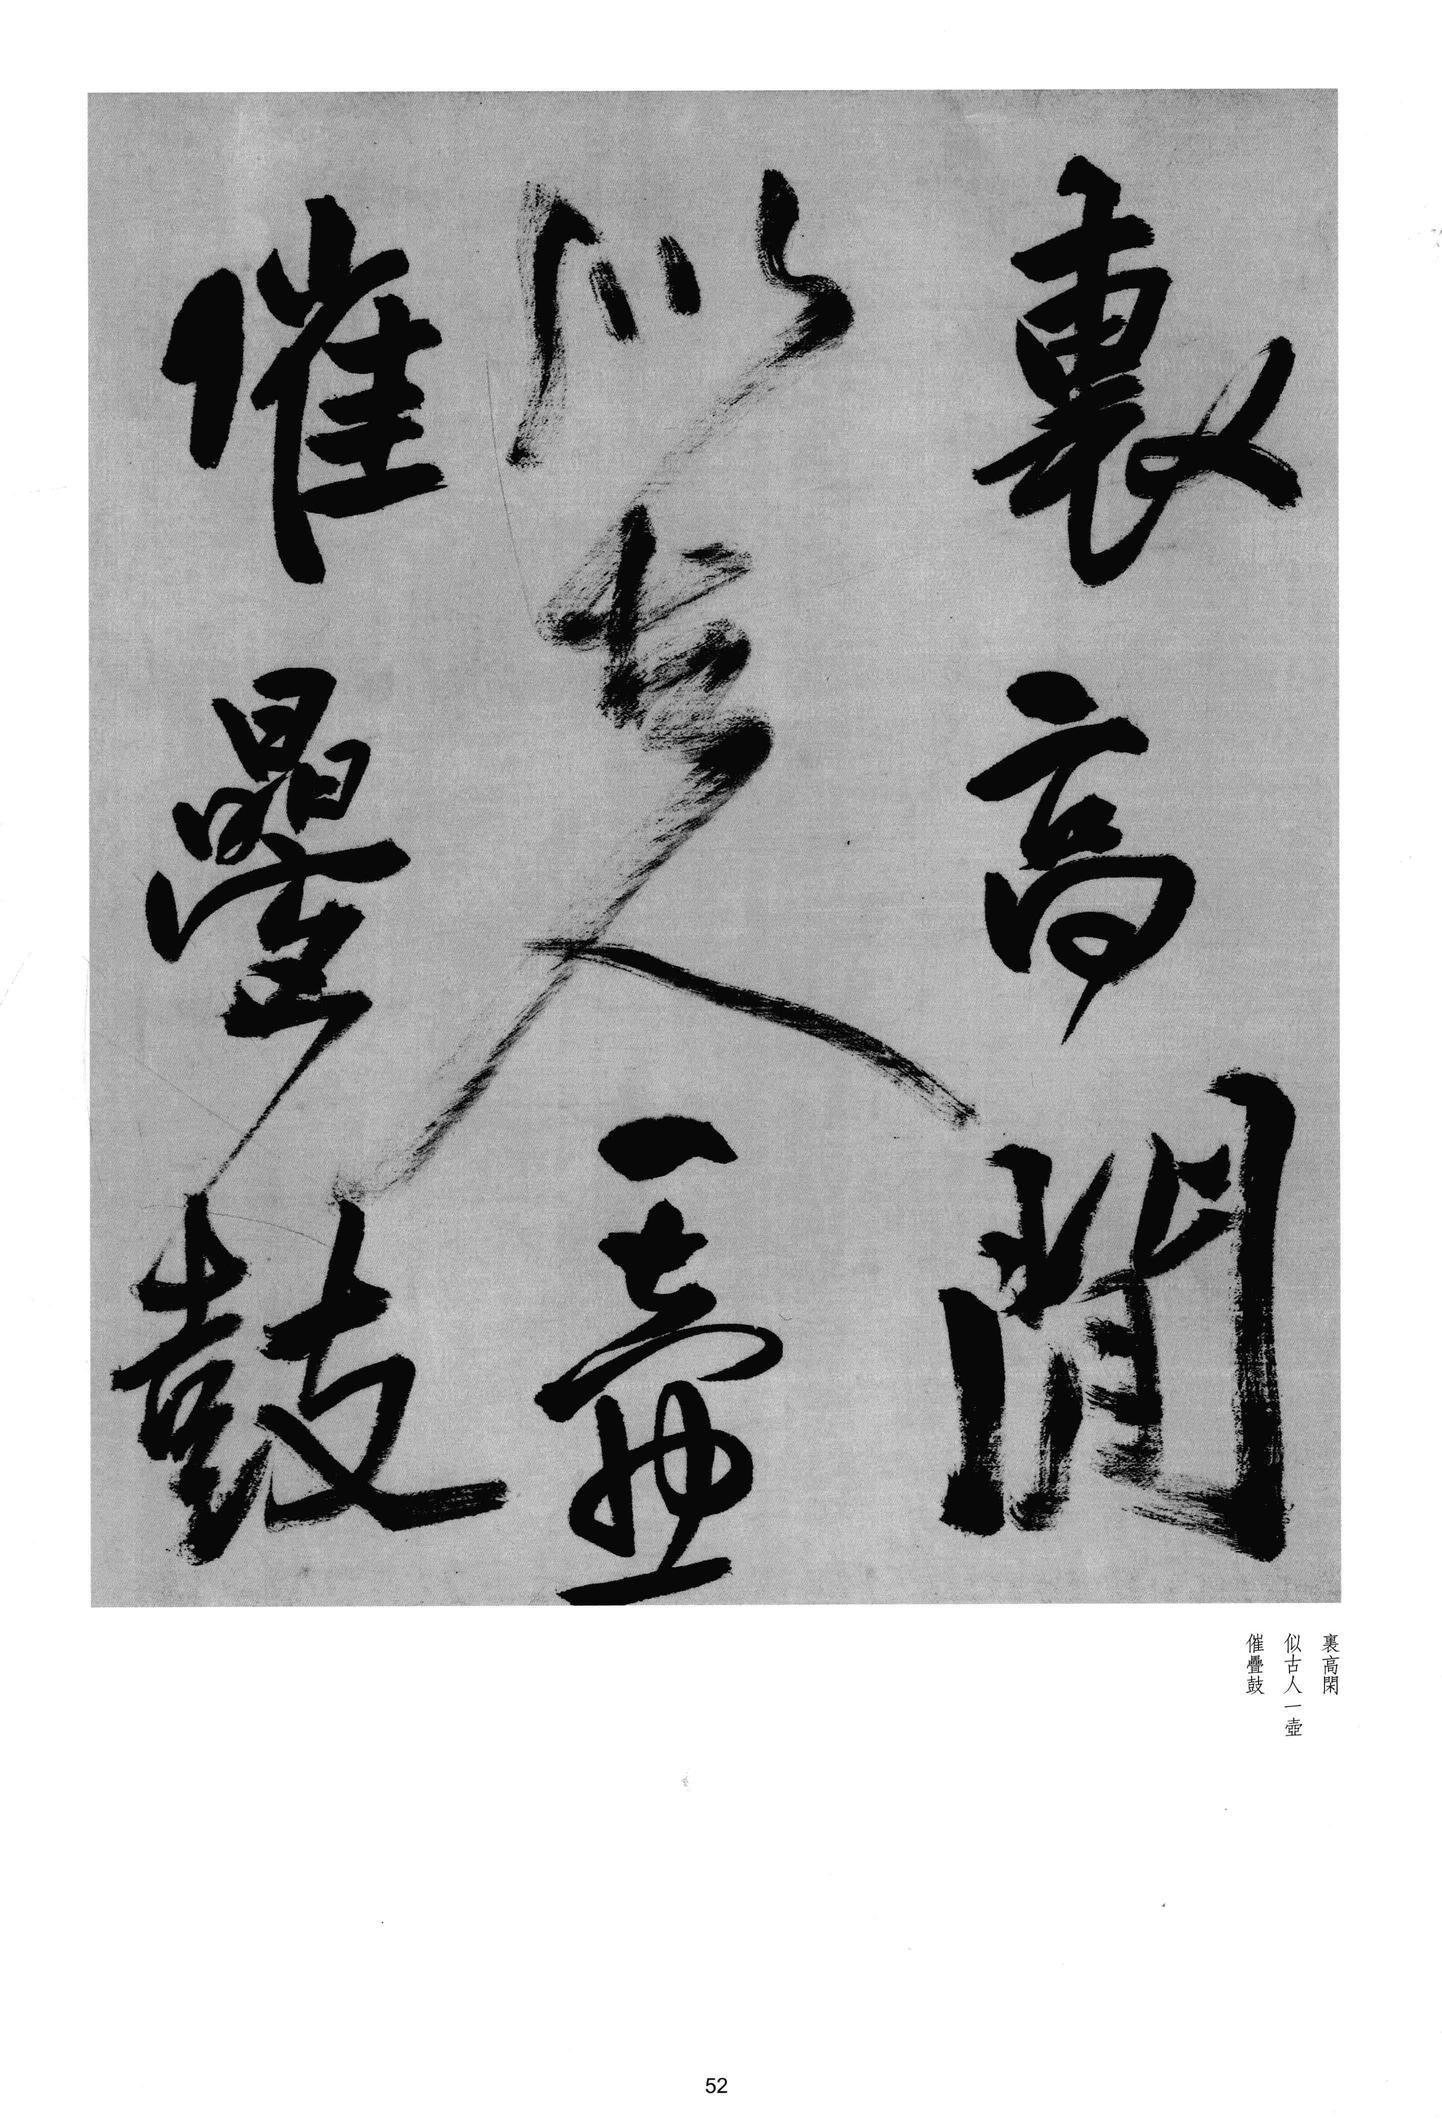 裏高閑
似古人一壺
催疊鼓
裏高閑
似古人一壺
催疊鼓
52